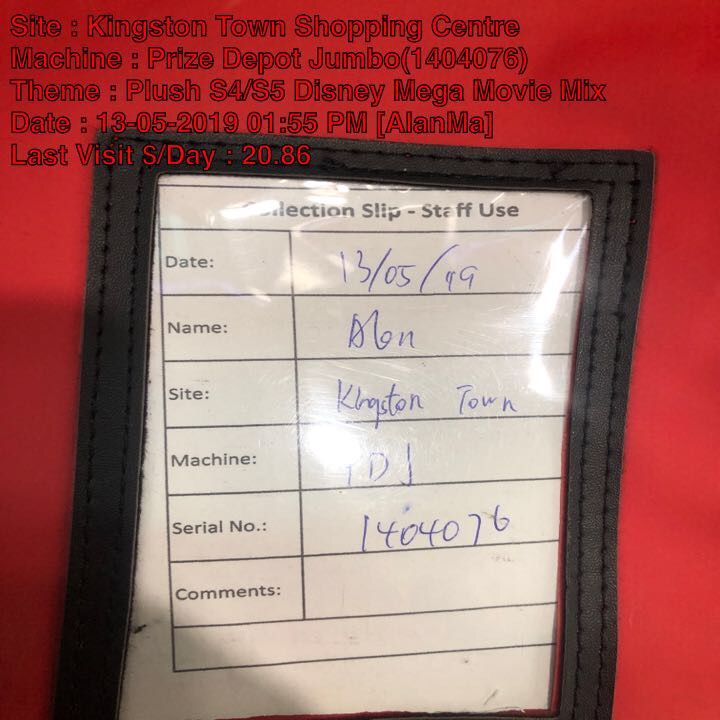 Site : Kingston Town Shopping Centre
Machine : Prize Depot Jumbo(1404076)
Theme : Plush S4/S5 Disney Mega Movie Mix
Date : 13-05-2019 01:55 PM [AlanMa]
Last Visit S/Day : 20.86
Collection Slip - Staff Use
Date: 13/05/19
Name: Alan
Site: Kingston Town
Machine: PDJ
Serial No.: 1404076
Comments: